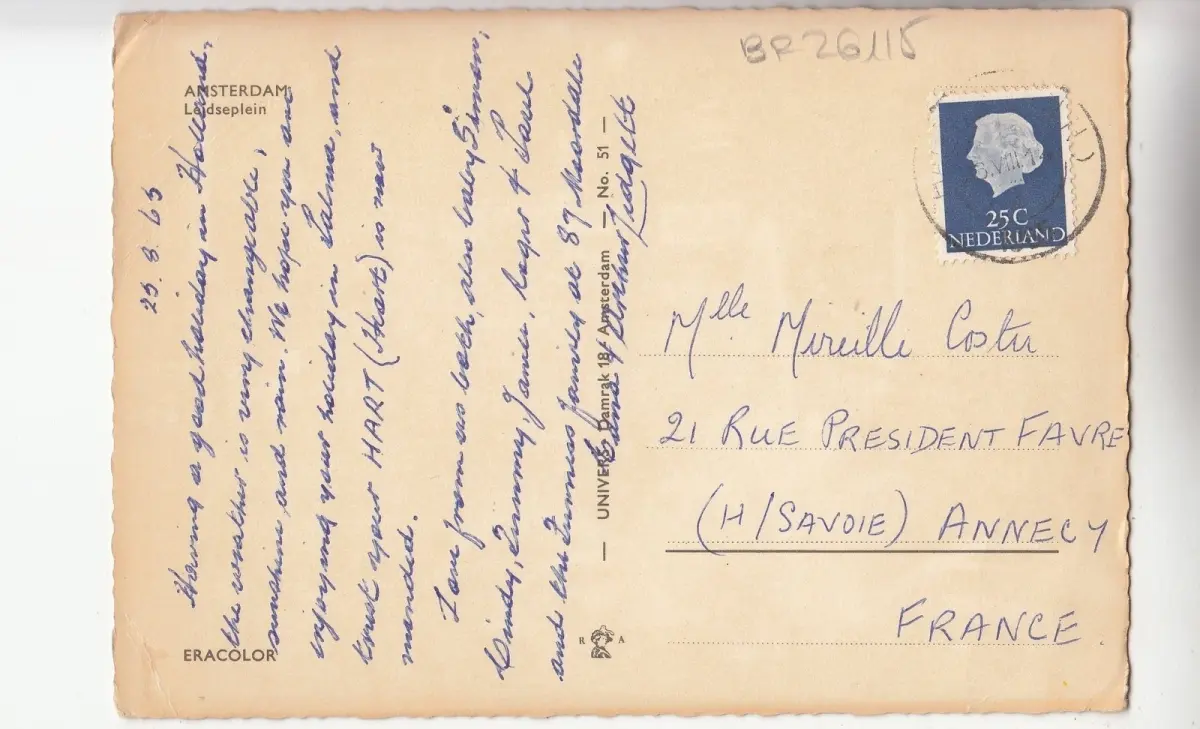 BR26115
AMSTERDAM
Leidseplein
25.8.65
Having a good holiday in Holland,
the weather is very changeable,
sunshine and rain. We hope you are
enjoying your holiday in Palma, and
trust your HART (Heart) is now
mended.
Love from us each, also baby Simon,
Cindy, Timmy, &
and the family at 87
ERACOLOR
UNIVERS Damrak 18 - Amsterdam — No. 51 —
R A
25C
NEDERLAND
Mlle Mireille Coster
21 RUE PRESIDENT FAVRE
(H/SAVOIE) ANNECY
FRANCE